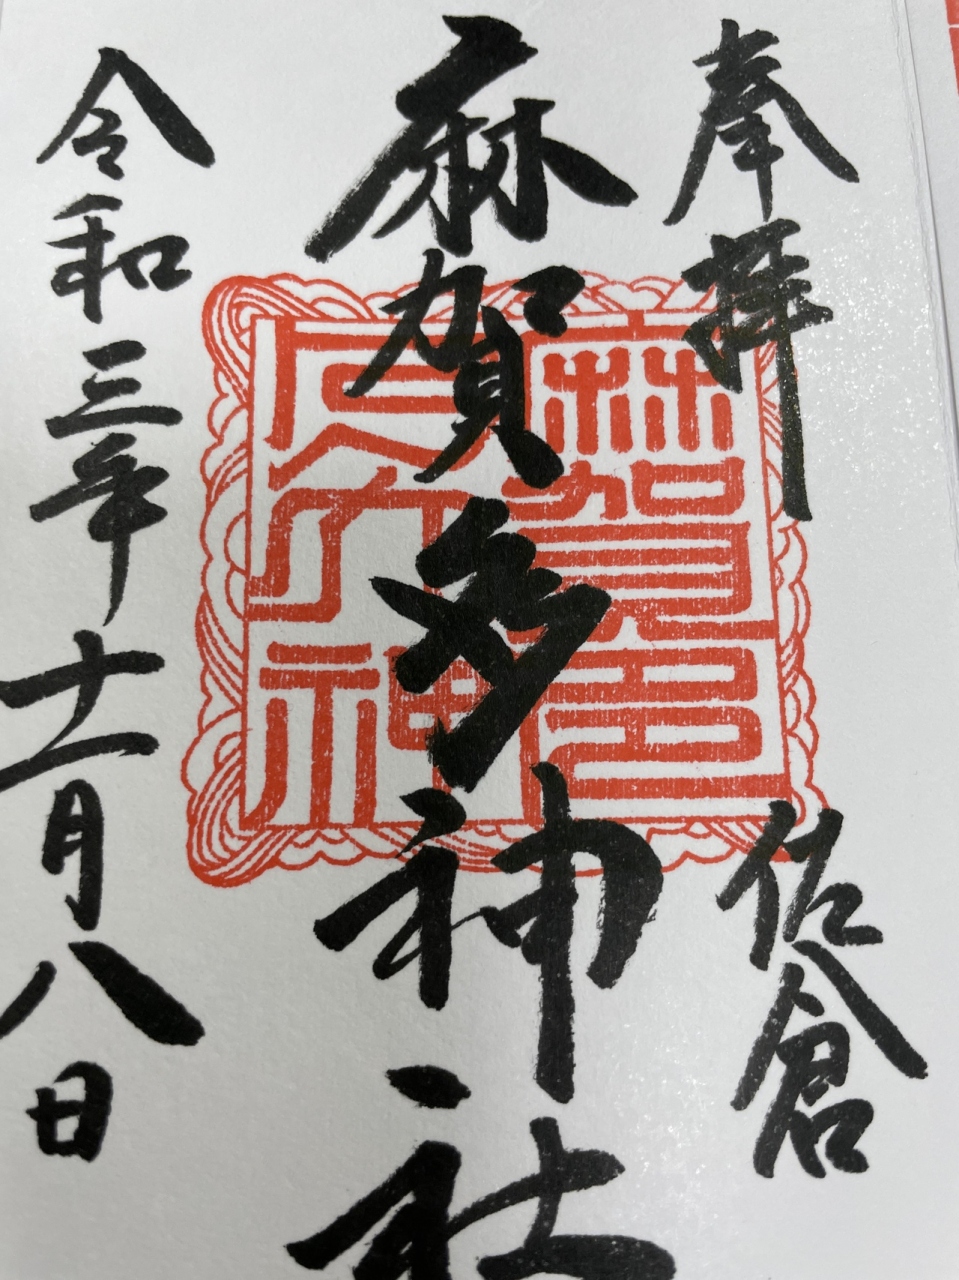 奉拝 佐倉
麻賀多神社
令和三年十一月八日
麻賀多
大神